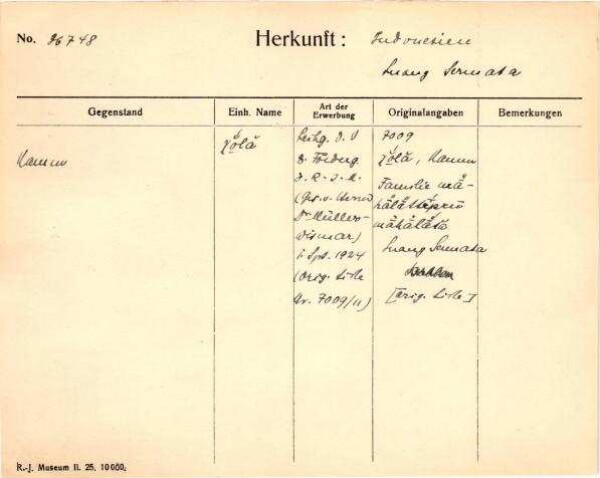 No. 36748
Herkunft: Indonesien
Luang Sermata
Gegenstand
Einh. Name
Art der Erwerbung
Originalangaben
Bemerkungen
Kamm
Leihg. D. V
z. Förderg
J. R.-J. M.
(Ges. v. Herrn
Dr Müller-
Wismar)
Spt. 1924
(Orig. Liste
Nr. 7009/II)
7009
Kamm
Familie
Luang Sermata
[Orig. Liste]
R.-J. Museum II. 25. 10000.